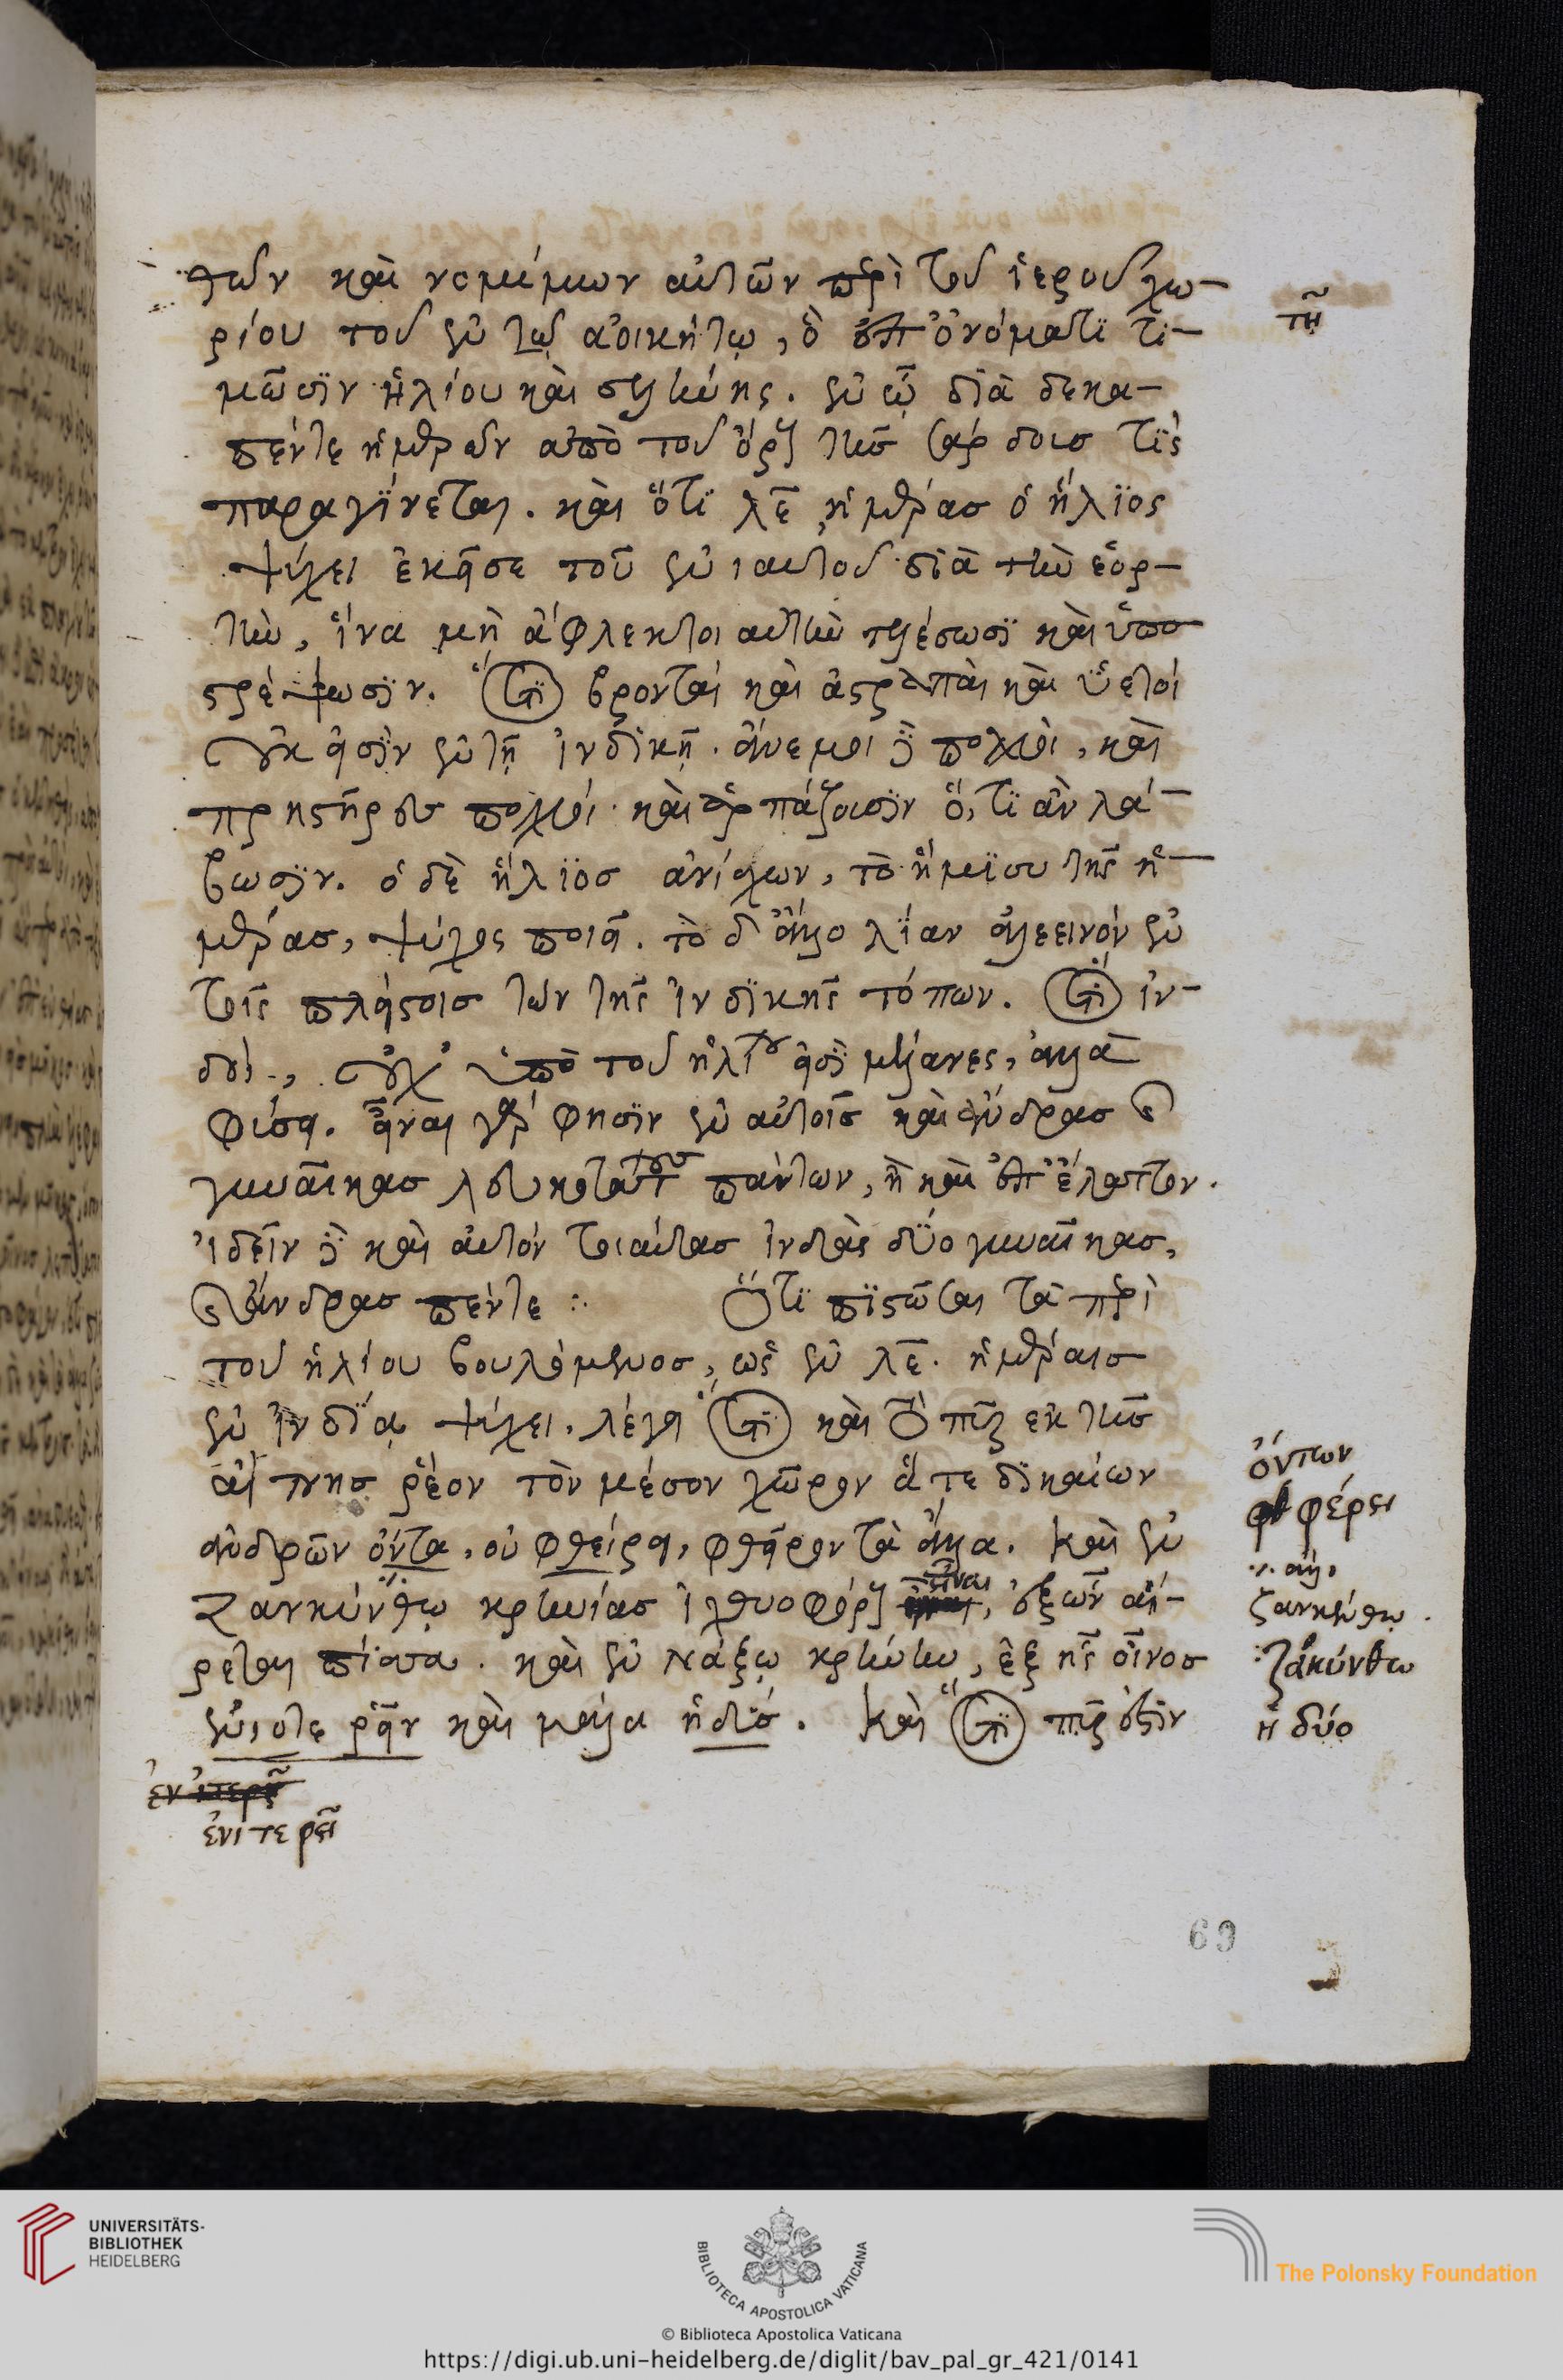 θῶν καὶ νομίμων αὐτῶν περὶ τοῦ ἱεροῦ χω-
ρίου τοῦ ἐν τῶ ἀοικήτῳ, ὃ ἐπ' ὀνόματϊ τϊ-
τῇ
μῶσϊν ἡλίου καὶ σελήνης. ἐν ᾧ δϊὰ δεκα-
πέντε ἡμερῶν ἀπὸ τοῦ ὄρους τῆς σάρδους τϊς
παραγϊνεται. καὶ ὅτϊ λε ἡμέρας ὁ ἥλϊος
ψύχει ἐκεῖσε τοῦ ἐνιαυτοῦ δϊὰ τὴν ἑορ-
τὴν, ἵνα μὴ ἄφλεκτοι αὐτὴν τελέσωσϊ καὶ ὑπο
στρέψωσϊν. ὅτϊ βρονταὶ καὶ ἀστραπαὶ καὶ ὑετοὶ
οὐκ εἰσὶν ἐν τῇ ἰνδϊκῇ. ἄνεμοι δὲ πολλοὶ, καὶ
πρηστῆρες πολλοὶ καὶ ἁρπάζουσϊν ὅ, τϊ ἂν λά-
βωσϊν. ὁ δὲ ἥλϊος ἀνίσχων, τὸ ἥμϊσυ τῆς ἡ-
μέρας, ψύχος ποιεῖ. τὸ δ' ἄλλο λϊαν ἀλεεινόν ἐν
τοῖς πλείστοις τῶν τῆς ἰνδϊκῆς τόπων. ὅτϊ ἰν-
δοὶ, οὐχ' ὑπὸ τοῦ ἡλίου εἰσὶ μέλανες, ἀλλὰ
φύσει. εἶναι γάρ φησϊν ἐν αὐτοῖς καὶ ἄνδρας καὶ
γυναῖκας λευκοτάτους πάντων, εἰ καὶ ἐπ' ἔλαττον.
ἰδεῖν δὲ καὶ αὐτὸν τοιαύτας ἰνδὰς δύο γυναῖκας,
καὶ ἄνδρας πέντε :. Ὅτϊ πϊστῶσαι τὰ περὶ
τοῦ ἡλίου βουλόμενος, ὡς ἐν λε. ἡμέραις
ἐν ἰνδϊᾳ ψύχει, λέγει ὅτϊ καὶ τὸ πῦρ ἐκ τῆς
αἴτνης ῥέον τὸν μέσον χῶρον ἅτε δϊκαίων
ἀνδρῶν ὄντα, οὐ φθείρει, φθεῖρον τὰ ἄλλα. καὶ ἐν
ὄντων
φέρει
ζανκύνθῳ κρηνίδας ἰχθυοφόρους εἶναι, ἐξ ὧν αἴ-
ζανκύνθῳ
ρεται πίσσα. καὶ ἐν νάξῳ κρήνην, ἐξ ἧς οἶνος
ζακύνθω
ἐνίοτε ῥεῖν καὶ μάλα ἡδύς. καὶ ὅτϊ πῦρ ἐστϊν
ἡδύο
ἐνιτερεῖ
69
UNIVERSITÄTS-
BIBLIOTHEK
HEIDELBERG
BIBLIOTECA APOSTOLICA VATICANA
The Polonsky Foundation
© Biblioteca Apostolica Vaticana
https://digi.ub.uni-heidelberg.de/diglit/bav_pal_gr_421/0141